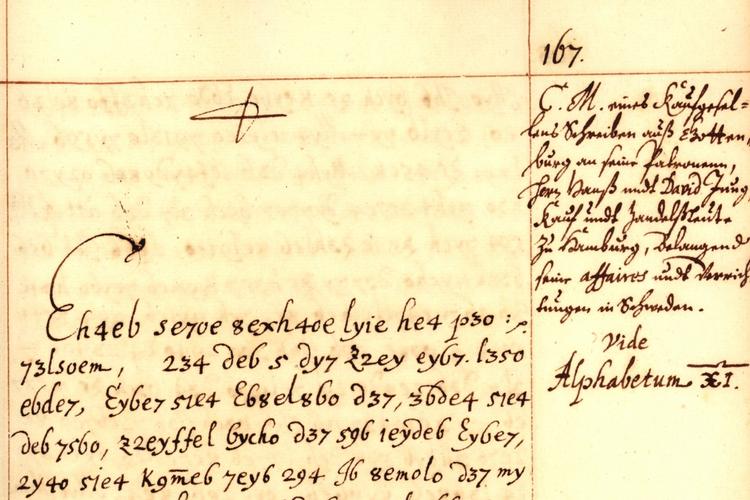 167.
C. M. eines Kaufgesel=
lens Schreiben auß Gotten,
burg an seine Patronenn,
Herrn Hanß undt David Jung
Kauf undt Handelßleute
zu Hamburg, belangend
seine affaires undt Verrich
tungen in Schweden.
Vide
Alphabetum XI.
Eh4eb se7oe 8exh4oe lyie he4 p30 :
73lsoem, 234 deb s dy7 ezey ey67. l350
e6de7, Ey6e7 s1e4 E68el860 d37, 36de4 s1e4
deb 7s60, zzeyffel bycho d37 596 ieydeb Ey6e7,
2y40 s1e4 K9m̄e6 7ey6 294 J6 8emolo d37 my